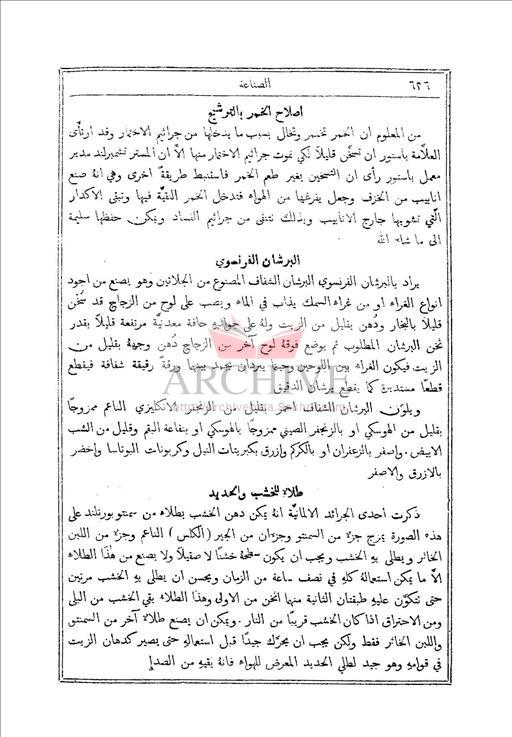 ٦٢٦ الصناعة
اصلاح الخمر بالترشيح
من المعلوم ان الخمر تختمر وتخلل بسبب ما يدخلها من جراثيم الاختمار وقد ارتأى
العلّامة باستور ان تسخّن قليلاً لكي تموت جراثيم الاختمار منها الاّ ان المستر تشمبرلند مدير
معمل باستور رأى ان التسخين يغير طعم الخمر فاستنبط طريقة اخرى وهي انهُ صنع
انابيب من الخزف وجعل يفرغها من الهواء فتدخل الخمر النقيّة فيها وتبقى الاكدار
الّتي تشوبها خارج الانابيب وبذلك تتنقى من جراثيم الفساد ويمكن حفظها سليمة
الى ما شاء الله
البرشان الفرنسوي
يراد بالبرشان الفرنسوي البرشان الشفاف المصنوع من الجلاتين وهو يصنع من اجود
انواع الغراء او من غراء السمك يذاب في الماء ويصب على لوح من الزجاج قد سُخّن
قليلاً بالبخار ودُهن بقليل من الزيت ولهُ على جوانبهِ حافة معدنيَّة مرتفعة قليلاً بقدر
ثخن البرشان المطلوب ثم يوضع فوقهُ لوح آخر من الزجاج دُهن وجههُ بقليل من
الزيت فيكون الغراء بين اللوحين وحينما يبردان يجمد بينها ورقةً رقيقة شفافة فيقطع
قطعًا مستديرة كما يقطع برشان الدقيق
ARCHIVE
ويلوّن البرشان الشفاف احمر بقليل من الزنجفر الانكليزي الناعم ممزوجًا
بقليل من الهوسكي او بالزنجفر الصيني ممزوجًا بالهوسكي او بنفاعة البقم وقليل من الشب
الابيض. واصفر بالزعفران او بالكركم وازرق بكبريتات النيل وكربونات البوتاسا واخضر
بالازرق والاصفر
طلاء للخشب والحديد
ذكرت احدى الجرائد الالمانيَّة انهُ يمكن دهن الخشب بطلاء من سمنتو بورتلند على
هذه الصورة يمزج جزء من السمنتو وجزءان من الجير (الكلس) الناعم وجزء من اللبن
الخاثر ويطلى بهِ الخشب ويجب ان يكون سطحهُ خشنًا لا صقيلاً ولا يصنع من هذا الطلاء
الاّ ما يمكن استعمالهُ كلهِ في نصف ساعة من الزمان ويحسن ان يطلى بهِ الخشب مرتين
حتى تتكوّن عليهِ طبقتان الثانية منهما اثخن من الاولى وهذا الطلاء يقي الخشب من البلى
ومن الاحتراق اذا كان الخشب قريبًا من النار. ويمكن ان يصنع طلاء آخر من السمنتو
واللبن الخاثر فقط ولكن يجب ان يحرّك جيدًا قبل استعمالهِ حتى يصير كدهان الزيت
في قوامهِ وهو جيد لطلي الحديد المعرض للهواء فانهُ يقيهِ من الصدإ